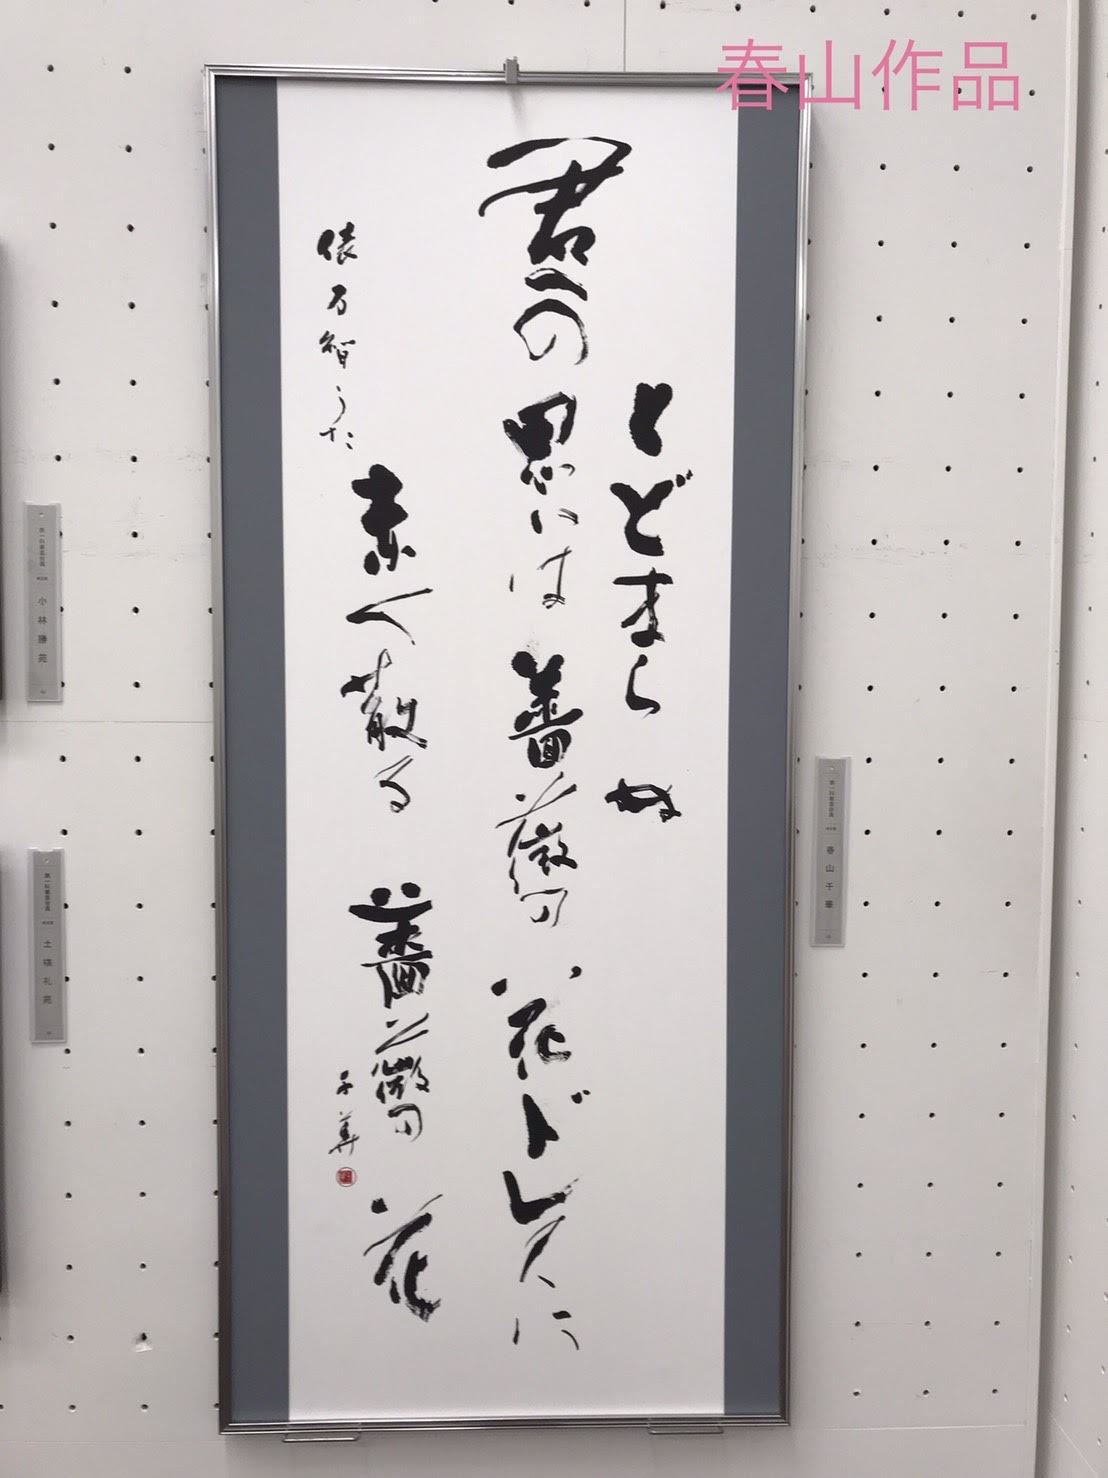 春山作品
とどまらぬ
君への思いは薔薇花ドレスに
赤く散る薔薇花
俵万智うた
千華
小林勝苑
春山千華